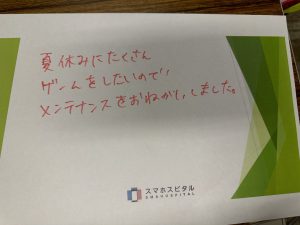 夏休みにたくさん
ゲームをしたいので、
メンテナンスをおねがいしました。
スマホスピタル
SMAHOSPITAL